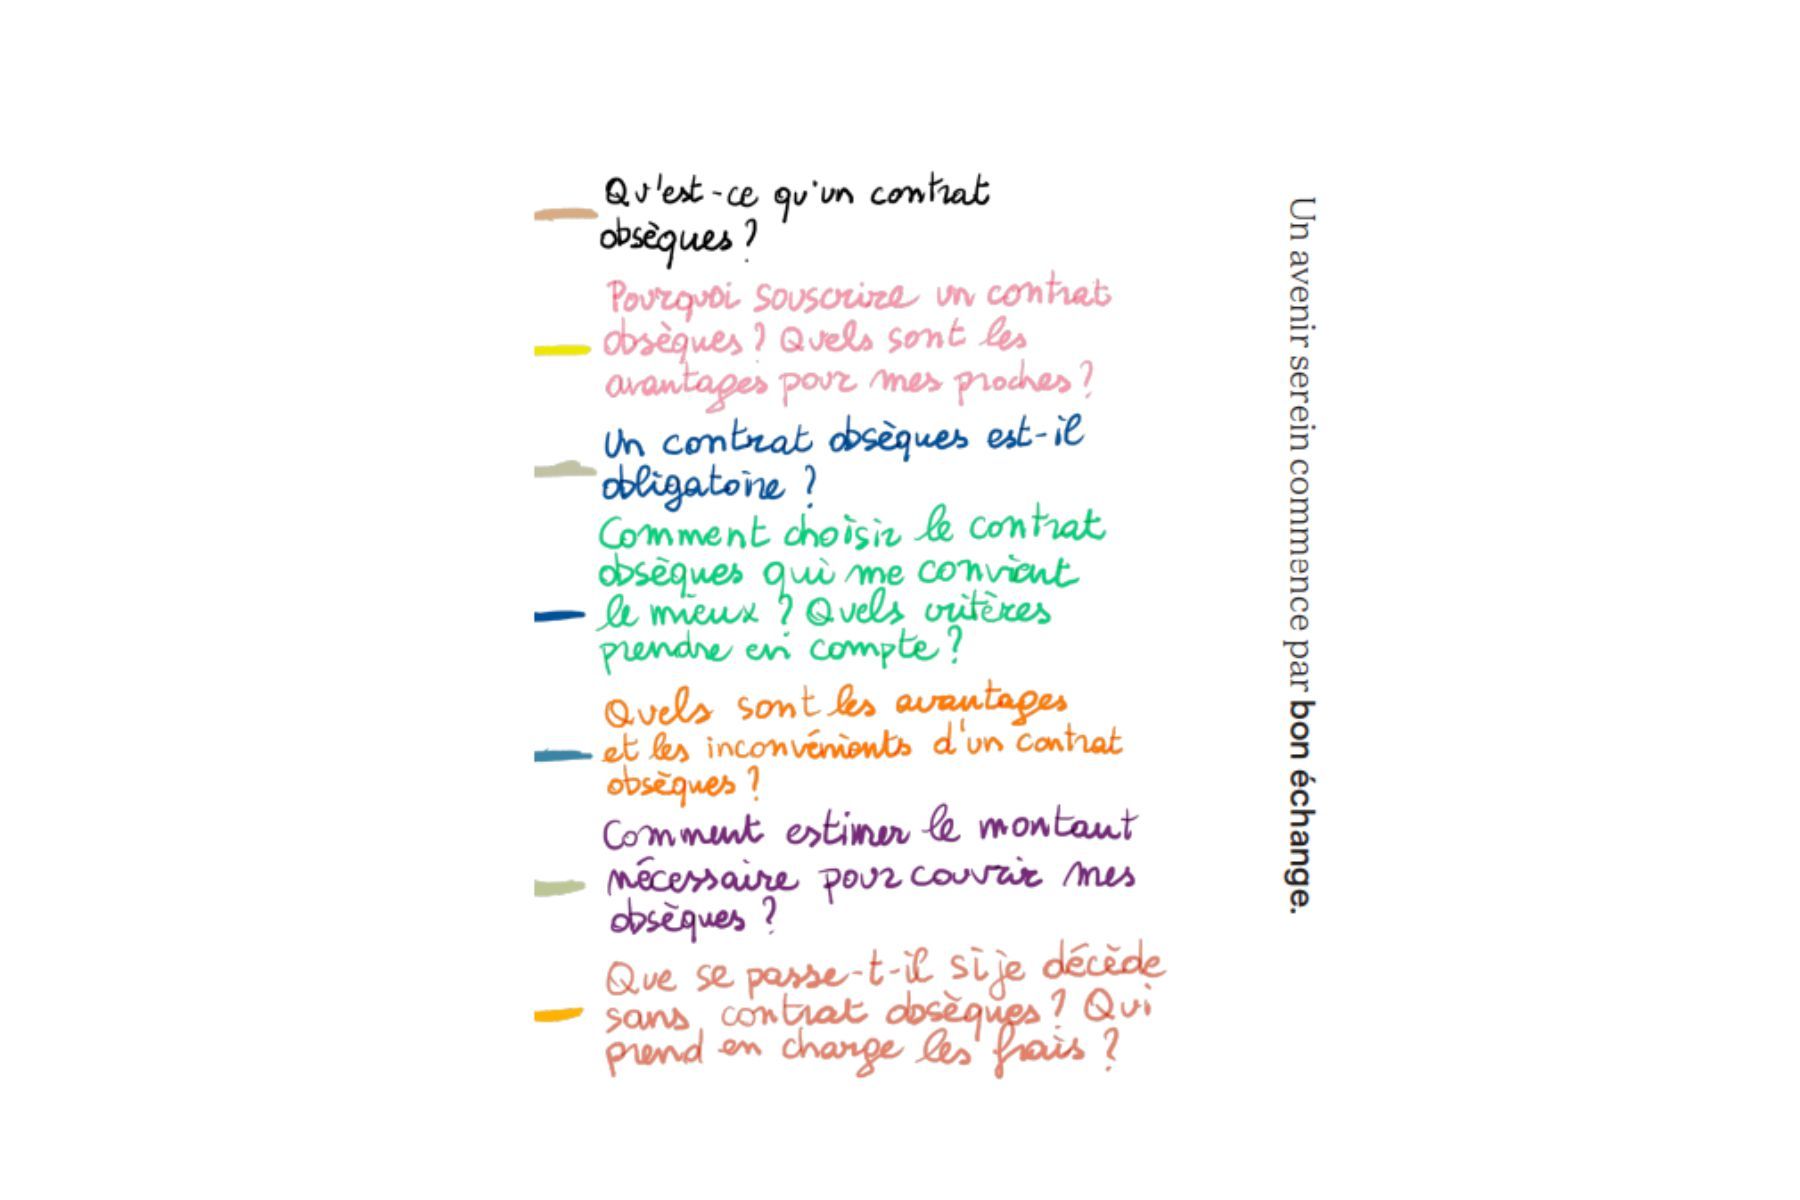 Qu'est-ce qu'un contrat
obsèques ?
Pourquoi souscrire un contrat
obsèques ? Quels sont les
avantages pour mes proches ?
Un contrat obsèques est-il
obligatoire ?
Comment choisir le contrat
obsèques qui me convient
le mieux ? Quels critères
prendre en compte ?
Quels sont les avantages
et les inconvénients d'un contrat
obsèques ?
Comment estimer le montant
nécessaire pour couvrir mes
obsèques ?
Que se passe-t-il si je décède
sans contrat obsèques ? Qui
prend en charge les frais ?
Un avenir serein commence par bon échange.